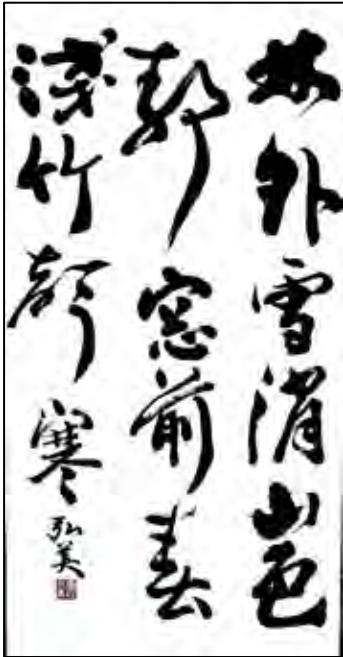 林外雪消山色
静窓前春
浅竹声寒 弘美